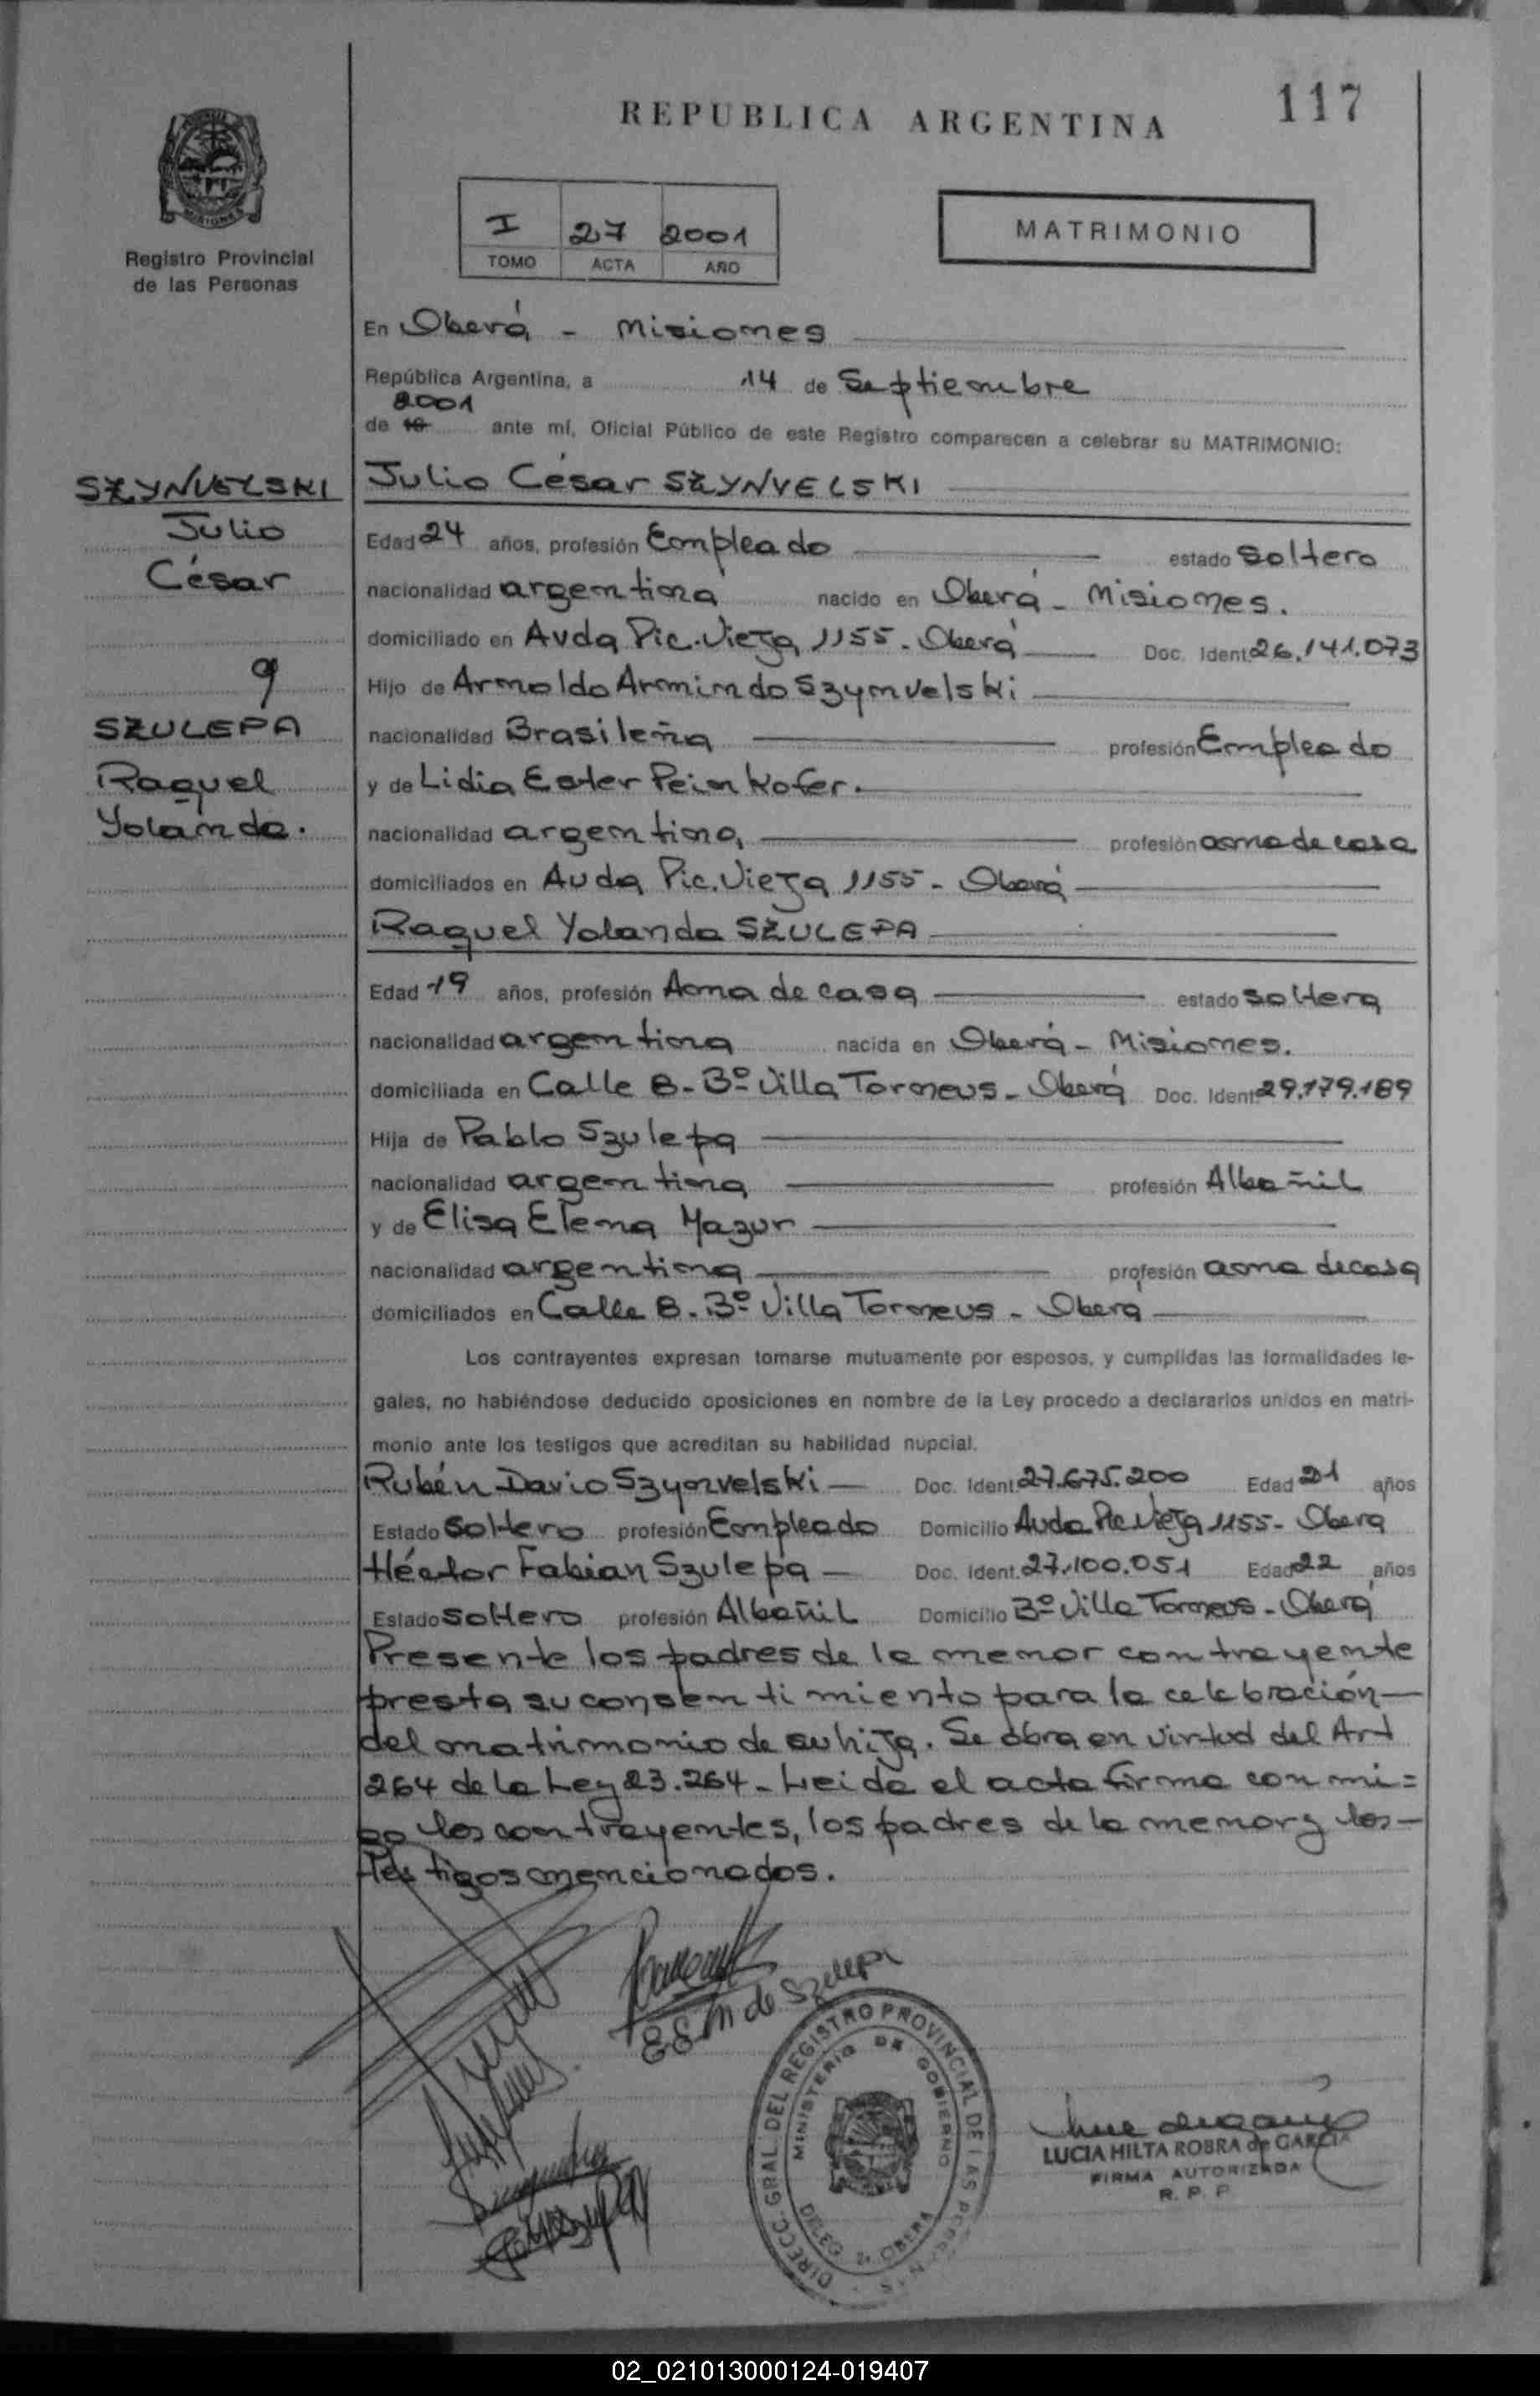 117
REPUBLICA ARGENTINA
MISIONES
Registro Provincial
de las Personas
I 27 2001
TOMO ACTA AÑO
MATRIMONIO
En Oberá - Misiones
República Argentina, a 14 de Septiembre
2001
de 19 ante mí, Oficial Público de este Registro comparecen a celebrar su MATRIMONIO:
SZYNVELSKI
Julio
César
y
SZULEPA
Raquel
Yolanda.
Julio César SZYNVELSKI
Edad 24 años, profesión Empleado estado Soltero
nacionalidad argentina nacido en Oberá - Misiones.
domiciliado en Avda Pic. Vieja 1155 - Oberá Doc. Ident. 26.141.073
Hijo de Arnoldo Armindo Szynvelski
nacionalidad Brasileña profesión Empleado
y de Lidia Ester Peinkofer.
nacionalidad argentina profesión ama de casa
domiciliados en Avda Pic. Vieja 1155 - Oberá
Raquel Yolanda SZULEPA
Edad 19 años, profesión Ama de casa estado soltera
nacionalidad argentina nacida en Oberá - Misiones.
domiciliada en Calle 8 - Bº Villa Torneus - Oberá Doc. Ident. 29.179.189
Hija de Pablo Szulepa
nacionalidad argentina profesión Albañil
y de Elisa Elena Mazur
nacionalidad argentina profesión ama de casa
domiciliados en Calle 8 - Bº Villa Torneus - Oberá
Los contrayentes expresan tomarse mutuamente por esposos, y cumplidas las formalidades le-
gales, no habiéndose deducido oposiciones en nombre de la Ley procedo a declararlos unidos en matri-
monio ante los testigos que acreditan su habilidad nupcial.
Rubén Dario Szynvelski Doc. Ident. 27.675.200 Edad 21 años
Estado Soltero profesión Empleado Domicilio Avda Pic Vieja 1155 - Oberá
Héctor Fabian Szulepa Doc. Ident. 27.100.051 Edad 22 años
Estado soltero profesión Albañil Domicilio Bº Villa Torneus - Oberá
Presente los padres de la menor contrayente
presta su consentimiento para la celebración
del matrimonio de su hija. Se obra en virtud del Art
264 de la Ley 23.264 - Leida el acta firma conmi=
go los contrayentes, los padres de la menor y los
testigos mencionados.
E E M de Szulepa
DIRECC. GRAL. DEL REGISTRO PROVINCIAL DE LAS PERSONAS
MINISTERIO DE GOBIERNO
DELEG OBERA
LUCIA HILTA ROBRA de GARCIA
FIRMA AUTORIZADA
R. P. P.
02_021013000124-019407